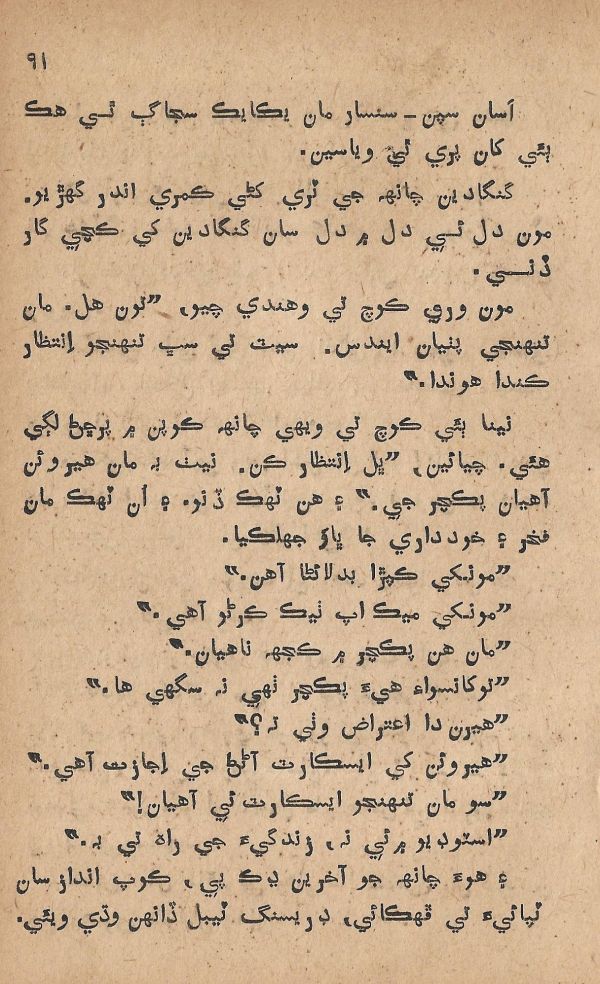 ۹۱
اَسان سپن ـ سنسار مان يڪايڪ سڄاڳ ٿي هڪ
ٻئي کان پري ٿي وياسين.
گنگادين چانهہ جي ٽري کڻي ڪمري اندر گهڙيو.
مون دل ئي دل ۾ دل سان گنگادين کي ڪچي گار
ڏني.
مون وري ڪوچ تي وهندي چيو، ”تون هل. مان
تنهنجي پٺيان ايندس. سيٽ تي سڀ تنهنجو اِنتظار
ڪندا هوندا.“
نينا ٻئي ڪوچ تي ويهي چانهہ ڪوپن ۾ ڀرڃڻ لڳي
هئي. چيائين، ”ڀل اِنتظار ڪن. نيٺ بہ مان هيروئن
آهيان پڪچر جي.“ ۽ هن ٽهڪ ڏنو. ۽ اُن ٽهڪ مان
فخر ۽ خودداري جا ڀاوَ جهلڪيا.
”مونکي ڪپڙا بدلائڻا آهن.“
”مونکي ميڪ اپ ٺيڪ ڪرڻو آهي.“
”مان هن پڪچر ۾ ڪجهہ ناهيان.“
”توکانسواءِ هيءَ پڪچر ٺهي نہ سگهي ها.“
”هيرن دا اعتراض وٺي تہ؟“
”هيروئن کي ايسڪارٽ آڻڻ جي اِجازت آهي.“
”سو مان تنهنجو ايسڪارٽ ئي آهيان!“
”اسٽوڊيو ۾ ئي نہ، زندگيءَ جي راه تي بہ.“
۽ هوءَ چانهہ جو آخرين ڍڪ پي، ڪوپ انداز سان
ٽپائيءَ تي ڦهڪائي، ڊريسنگ ٽيبل ڏانهن وڌي ويئي.